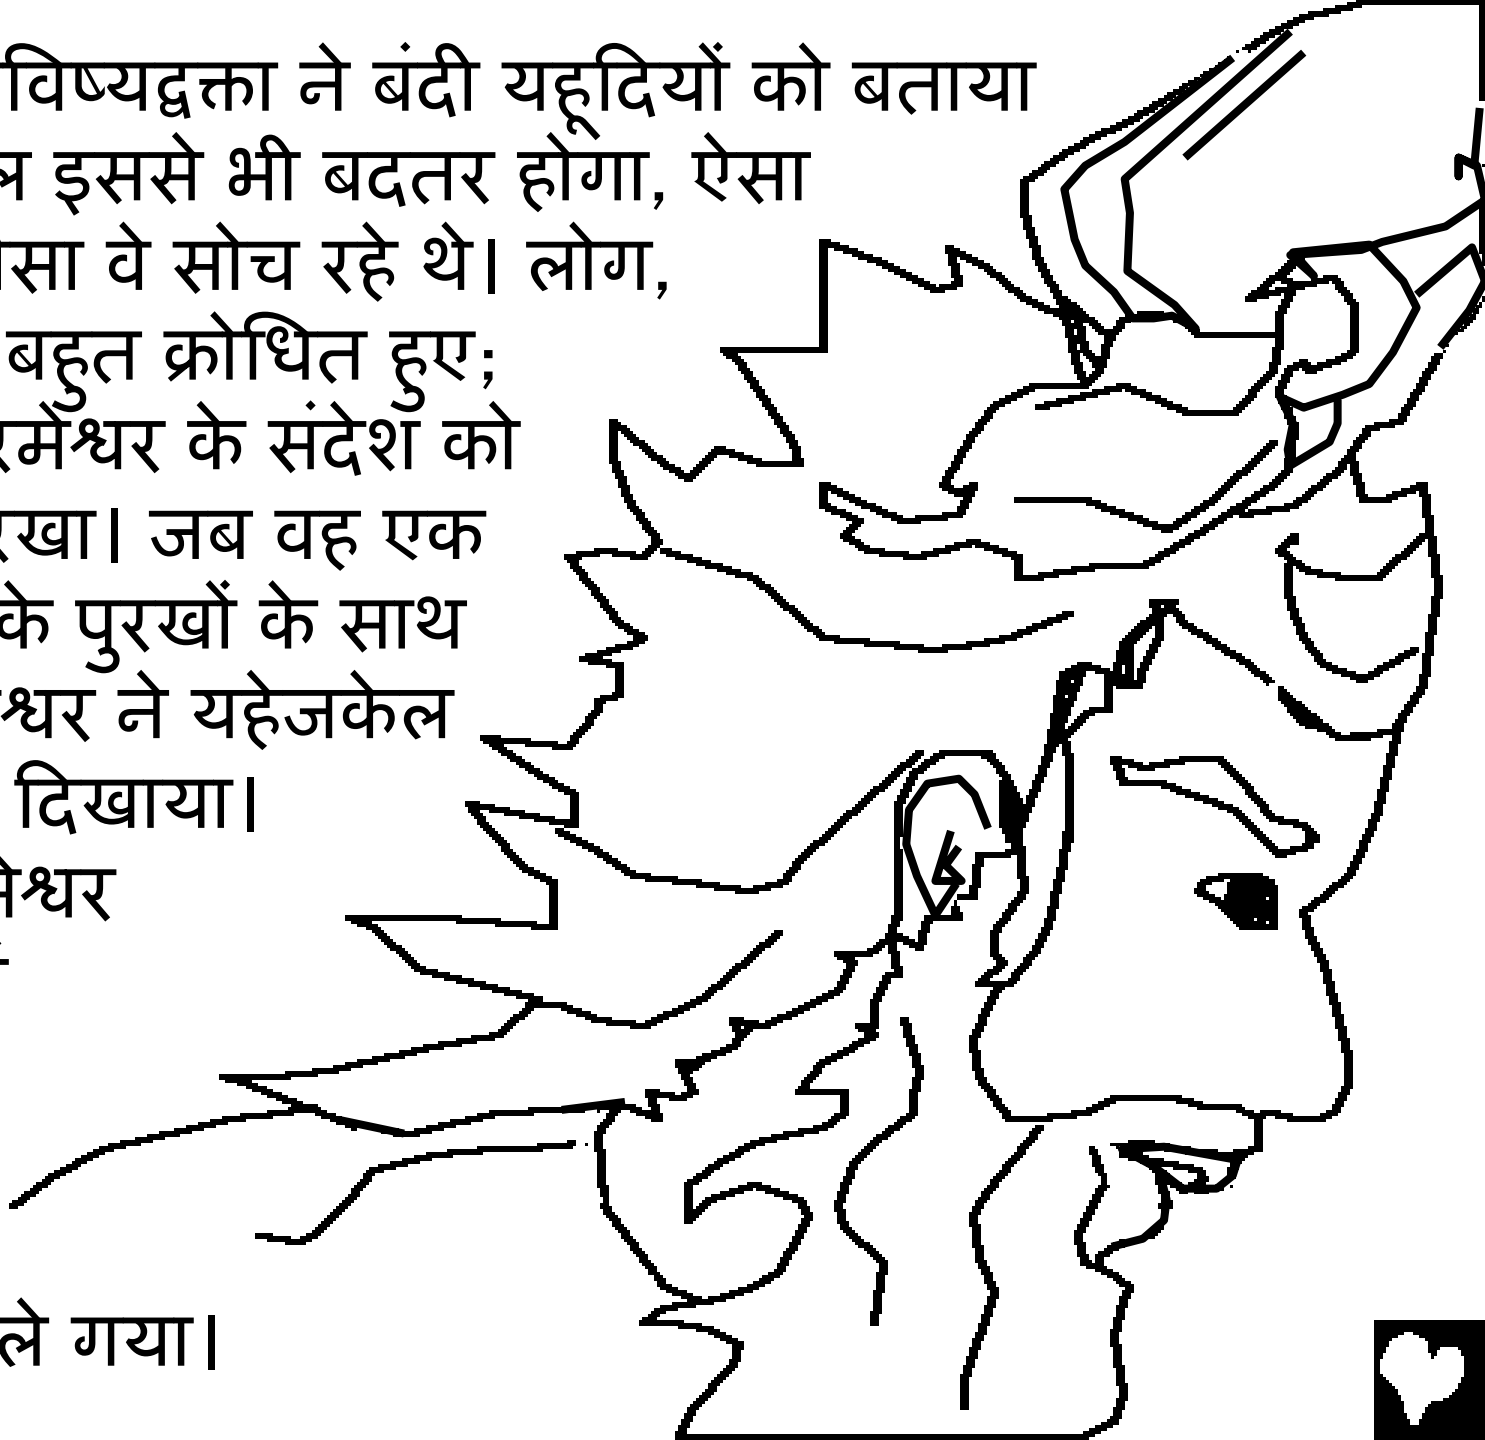 विष्यद्वक्ता ने बंदी यहूदियों को बताया
इससे भी बदतर होगा, ऐसा
वे सोच रहे थे। लोग,
बहुत क्रोधित हुए;
के संदेश को
जब वह एक
के पुरखों के साथ
ने यहेजकेल
दिखाया।
ले गया।